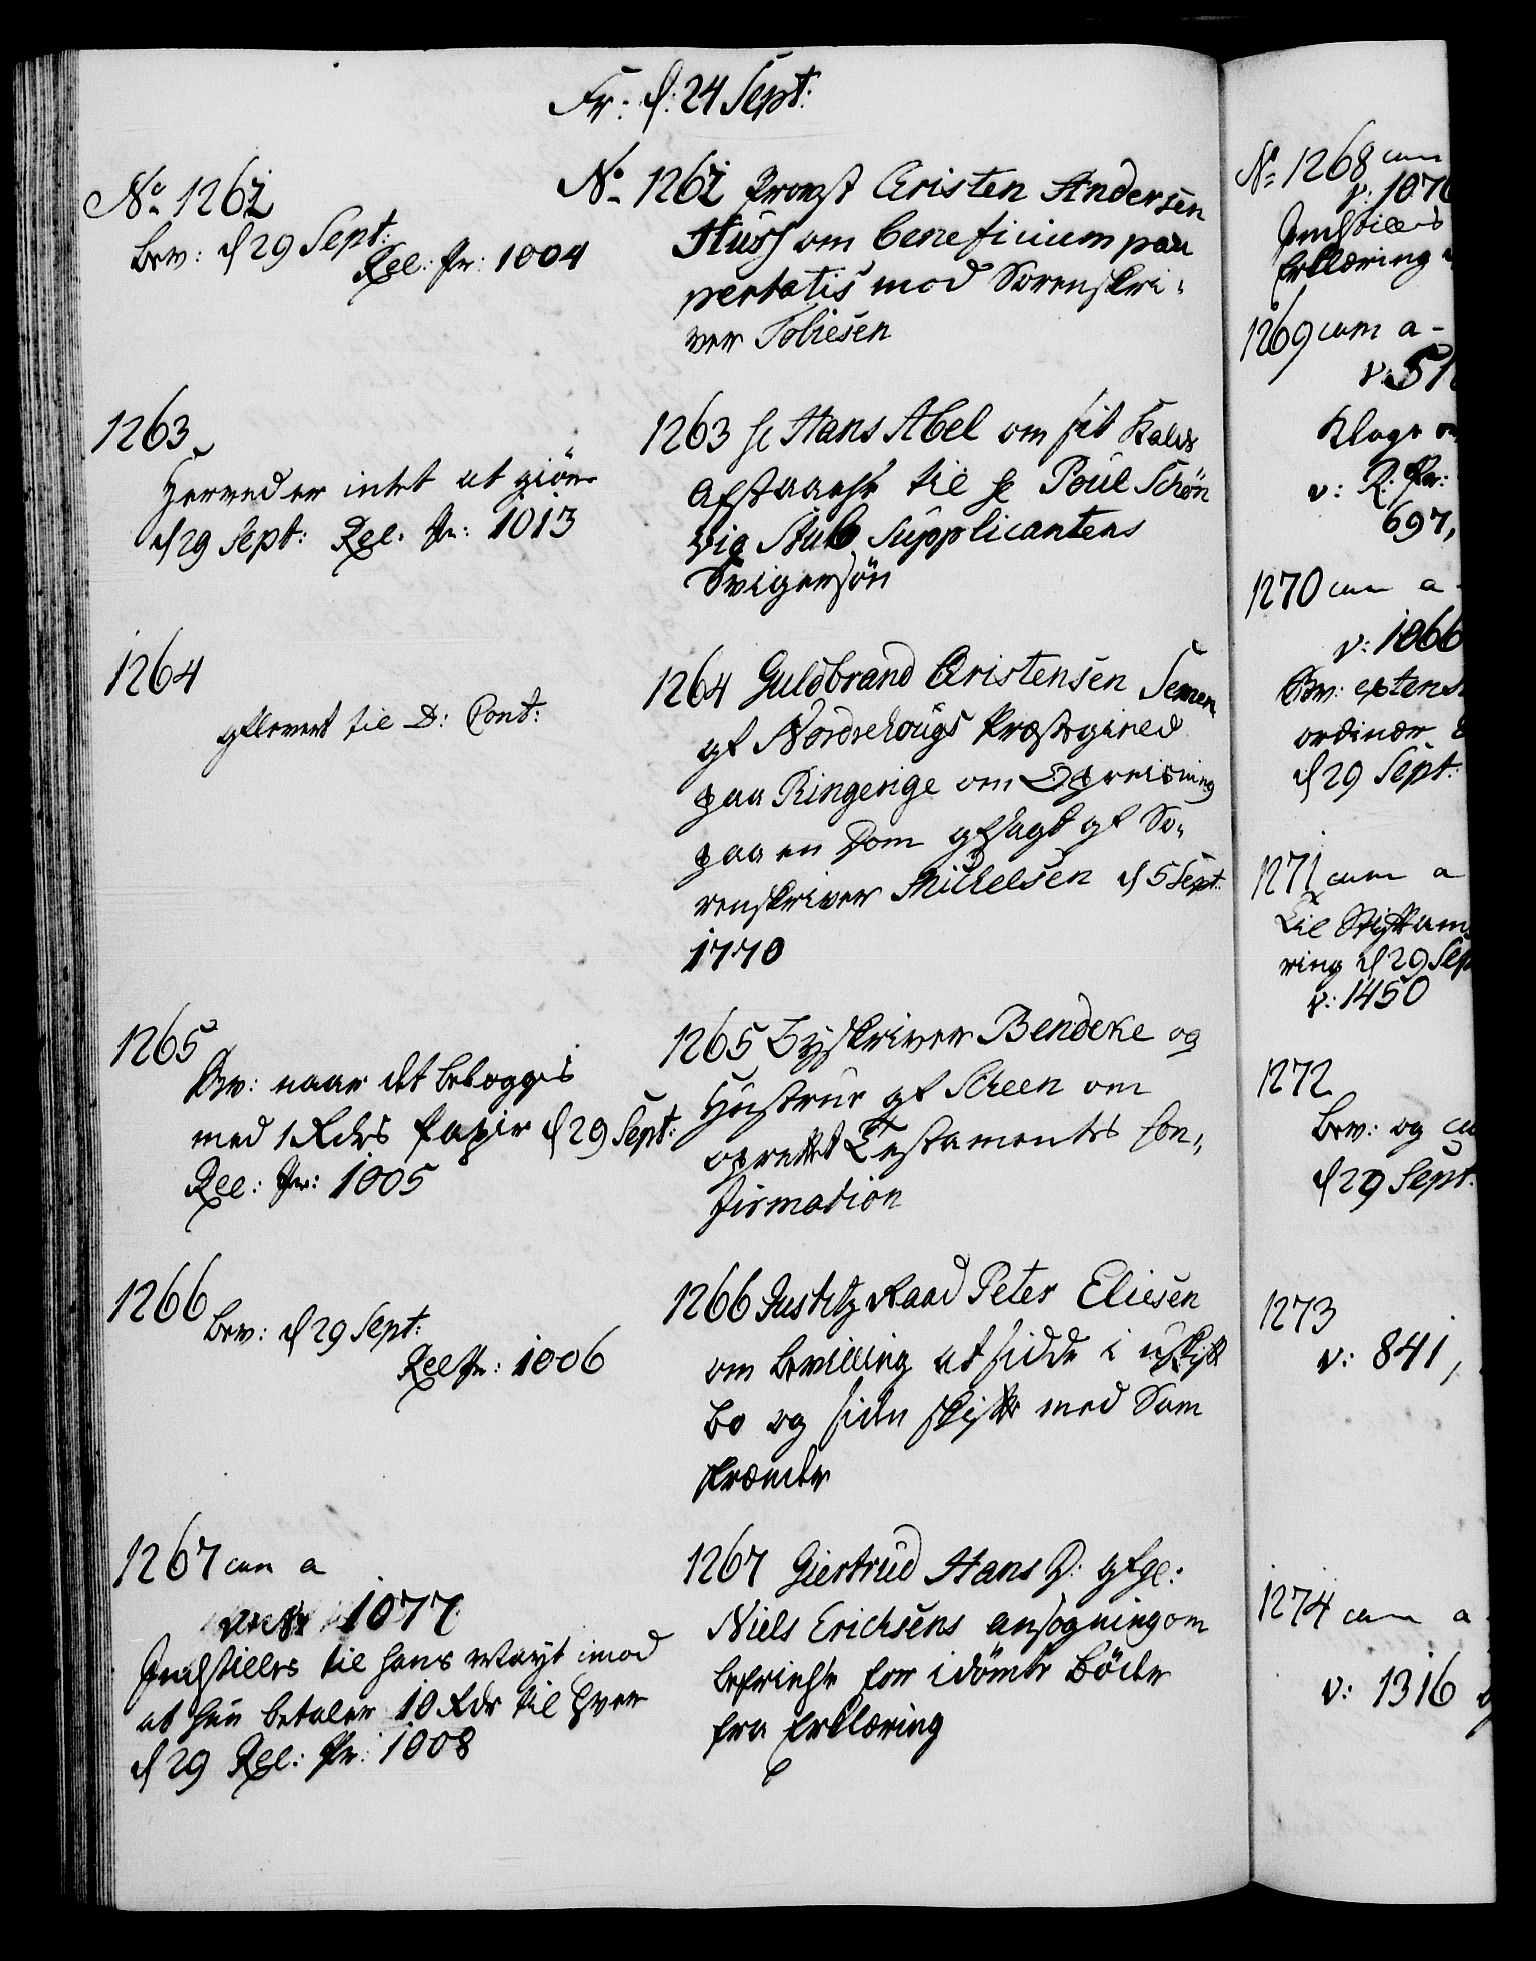 Fr: d: 24 Sept:
No 1262
Bev: d 29 Sept:
Rel: Pr: 1004
No 1262 Provst Christen Andersen
Huss om beneficium pau
pertatis mod Sorenskri-
ver Tobiesen
1263
Herved er intet at giöre
d 29 Sept: Rel: Pr: 1013
1263 hr Hans Abel om sit Kalds
Afstaaelse til hr Poul Schön
vig Stub Supplicantens
Svigersön
1264
afleveret til D: Cont:
1264 Guldbrand Christensen Semen
af Nordrehougs Præstegield
paa Ringerige om Opreisning
paa en Dom afsagt af So-
renskriver Michelsen d 5 Sept:
1770
1265
Bev: naar det belægges
med 1 Rdrs Papir d 29 Sept:
Rel: Pr: 1005
1265 Byskriver Bendeke og
Hustrue af Scheen om
oprettet Testamentes Con-
firmation
1266
Bev: d 29 Sept:
Rel Pr: 1006
1266 Justitz Raad Peter Eliesen
om bevilling at sidde i uskift
bo og siden skifte med Sam
frænder
1267 cum a
1077
Indstilles til hans Mayt imod
at hun betaler 10 Rdr til hver
d 29 Rel: Pr: 1008
1267 Giertrud Hans D: afgl:
Niels Erichsens ansøgning om
befrielse for idömte Böder
fra Erklæring
No 1268 cum
v: 107
Indstilles
Erklæring
1269 cum a-
v: 51
Klage
v: R: Pr:
697,
1270 cum a-
v: 1066
Bev: extens
ordinær
d 29 Sept:
1271 cum a
Til Stiftam
ring d 29 Sep
v: 1450
1272
Bev: og
d 29 Sept.
1273
v: 841,
1274 cum a
v: 1316